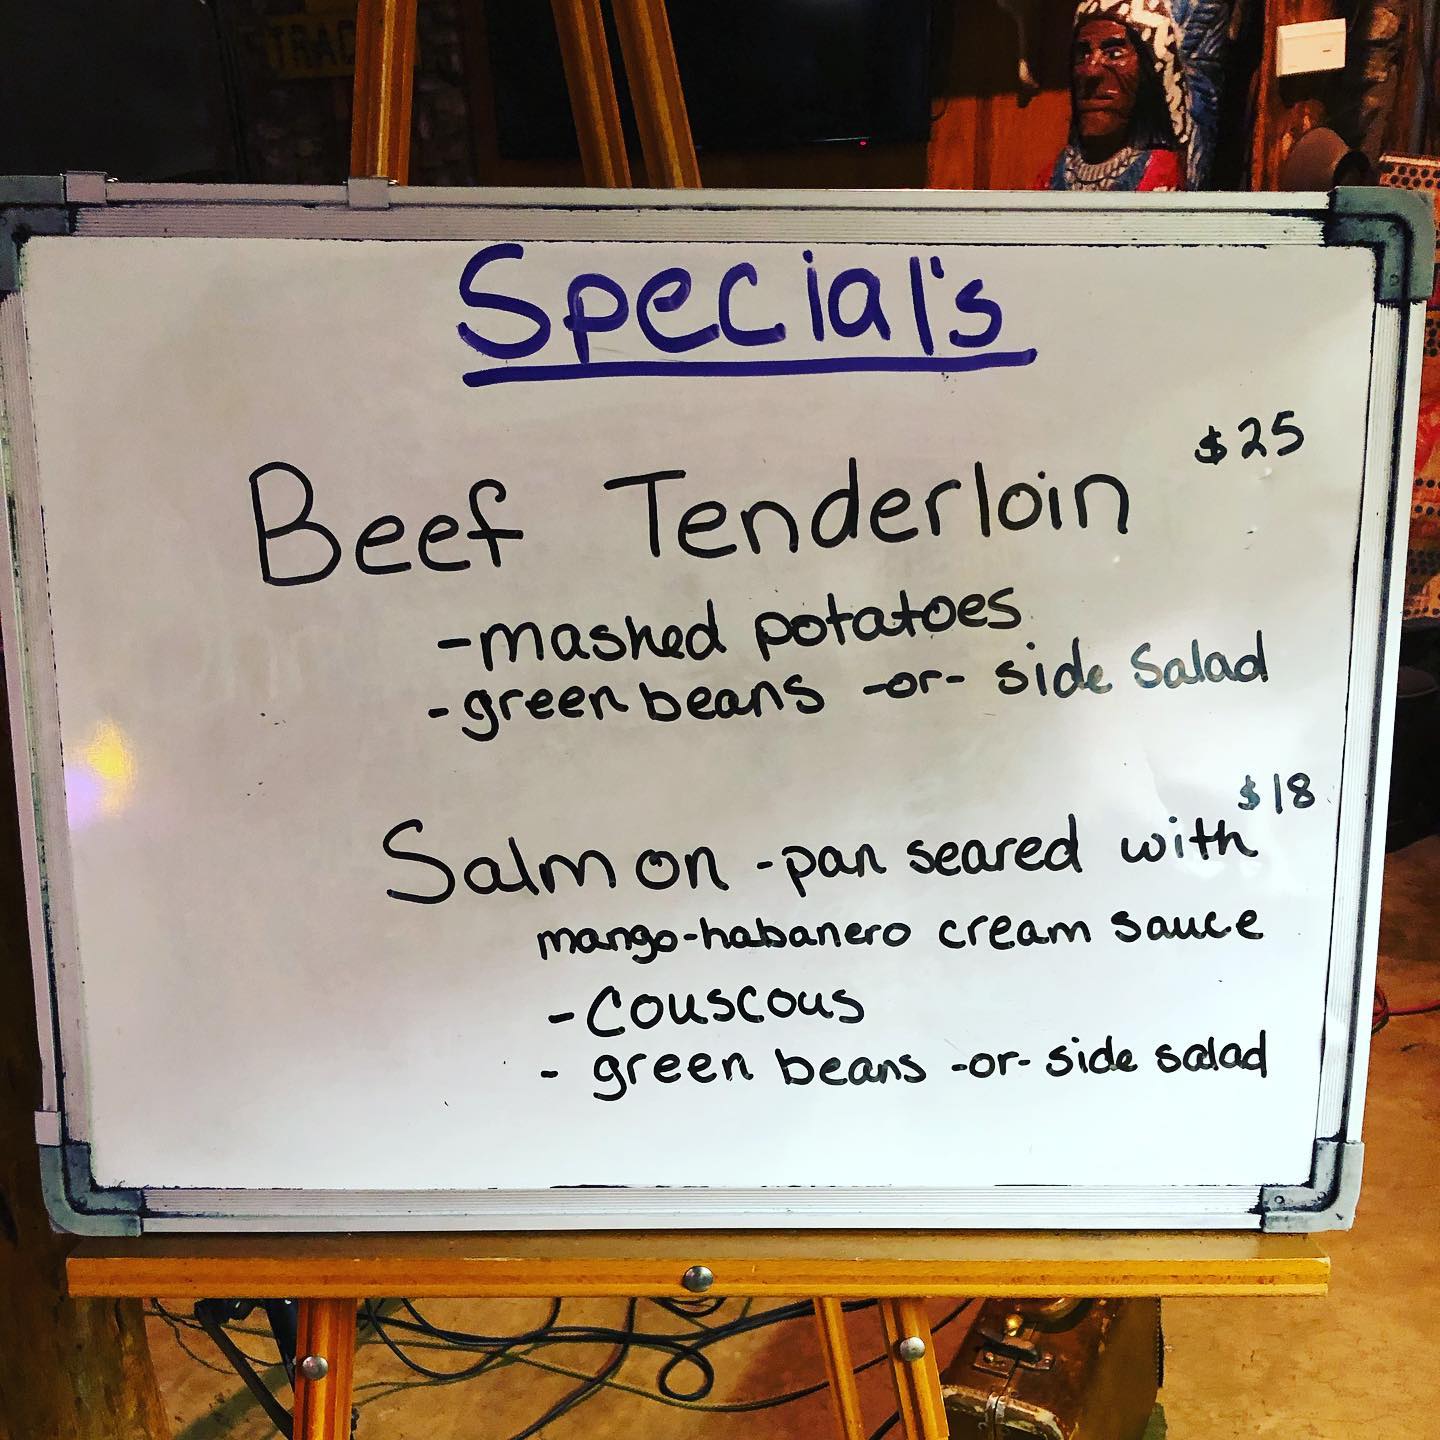 TRAC
Special's
$25
Beef Tenderloin
-mashed potatoes
-green beans -or- side Salad
$18
Salmon -pan seared with
mango-habanero cream sauce
-Couscous
- green beans -or- side salad